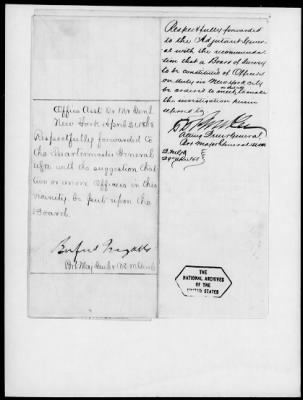 Office Asst Qr Mr Genl
New York April 21 1868
Respectfully forwarded to
the Quartermaster General
U.S.A. with the suggestion that
two or more Officers in this
vicinity be put upon the
Board.
Rufus Ingalls
Bvt Maj Genl & A.Q.M. Genl
Respectfully forwarded
to the Adjutant General
with the recommenda
tion that a Board of Survey
to be constituted of Officers
on duty in New York City
be ordered to
the investigation herein
Acting Qr Mr General
Bvt Major General U.S.A.
THE
NATIONAL ARCHIVES
OF THE
UNITED STATES